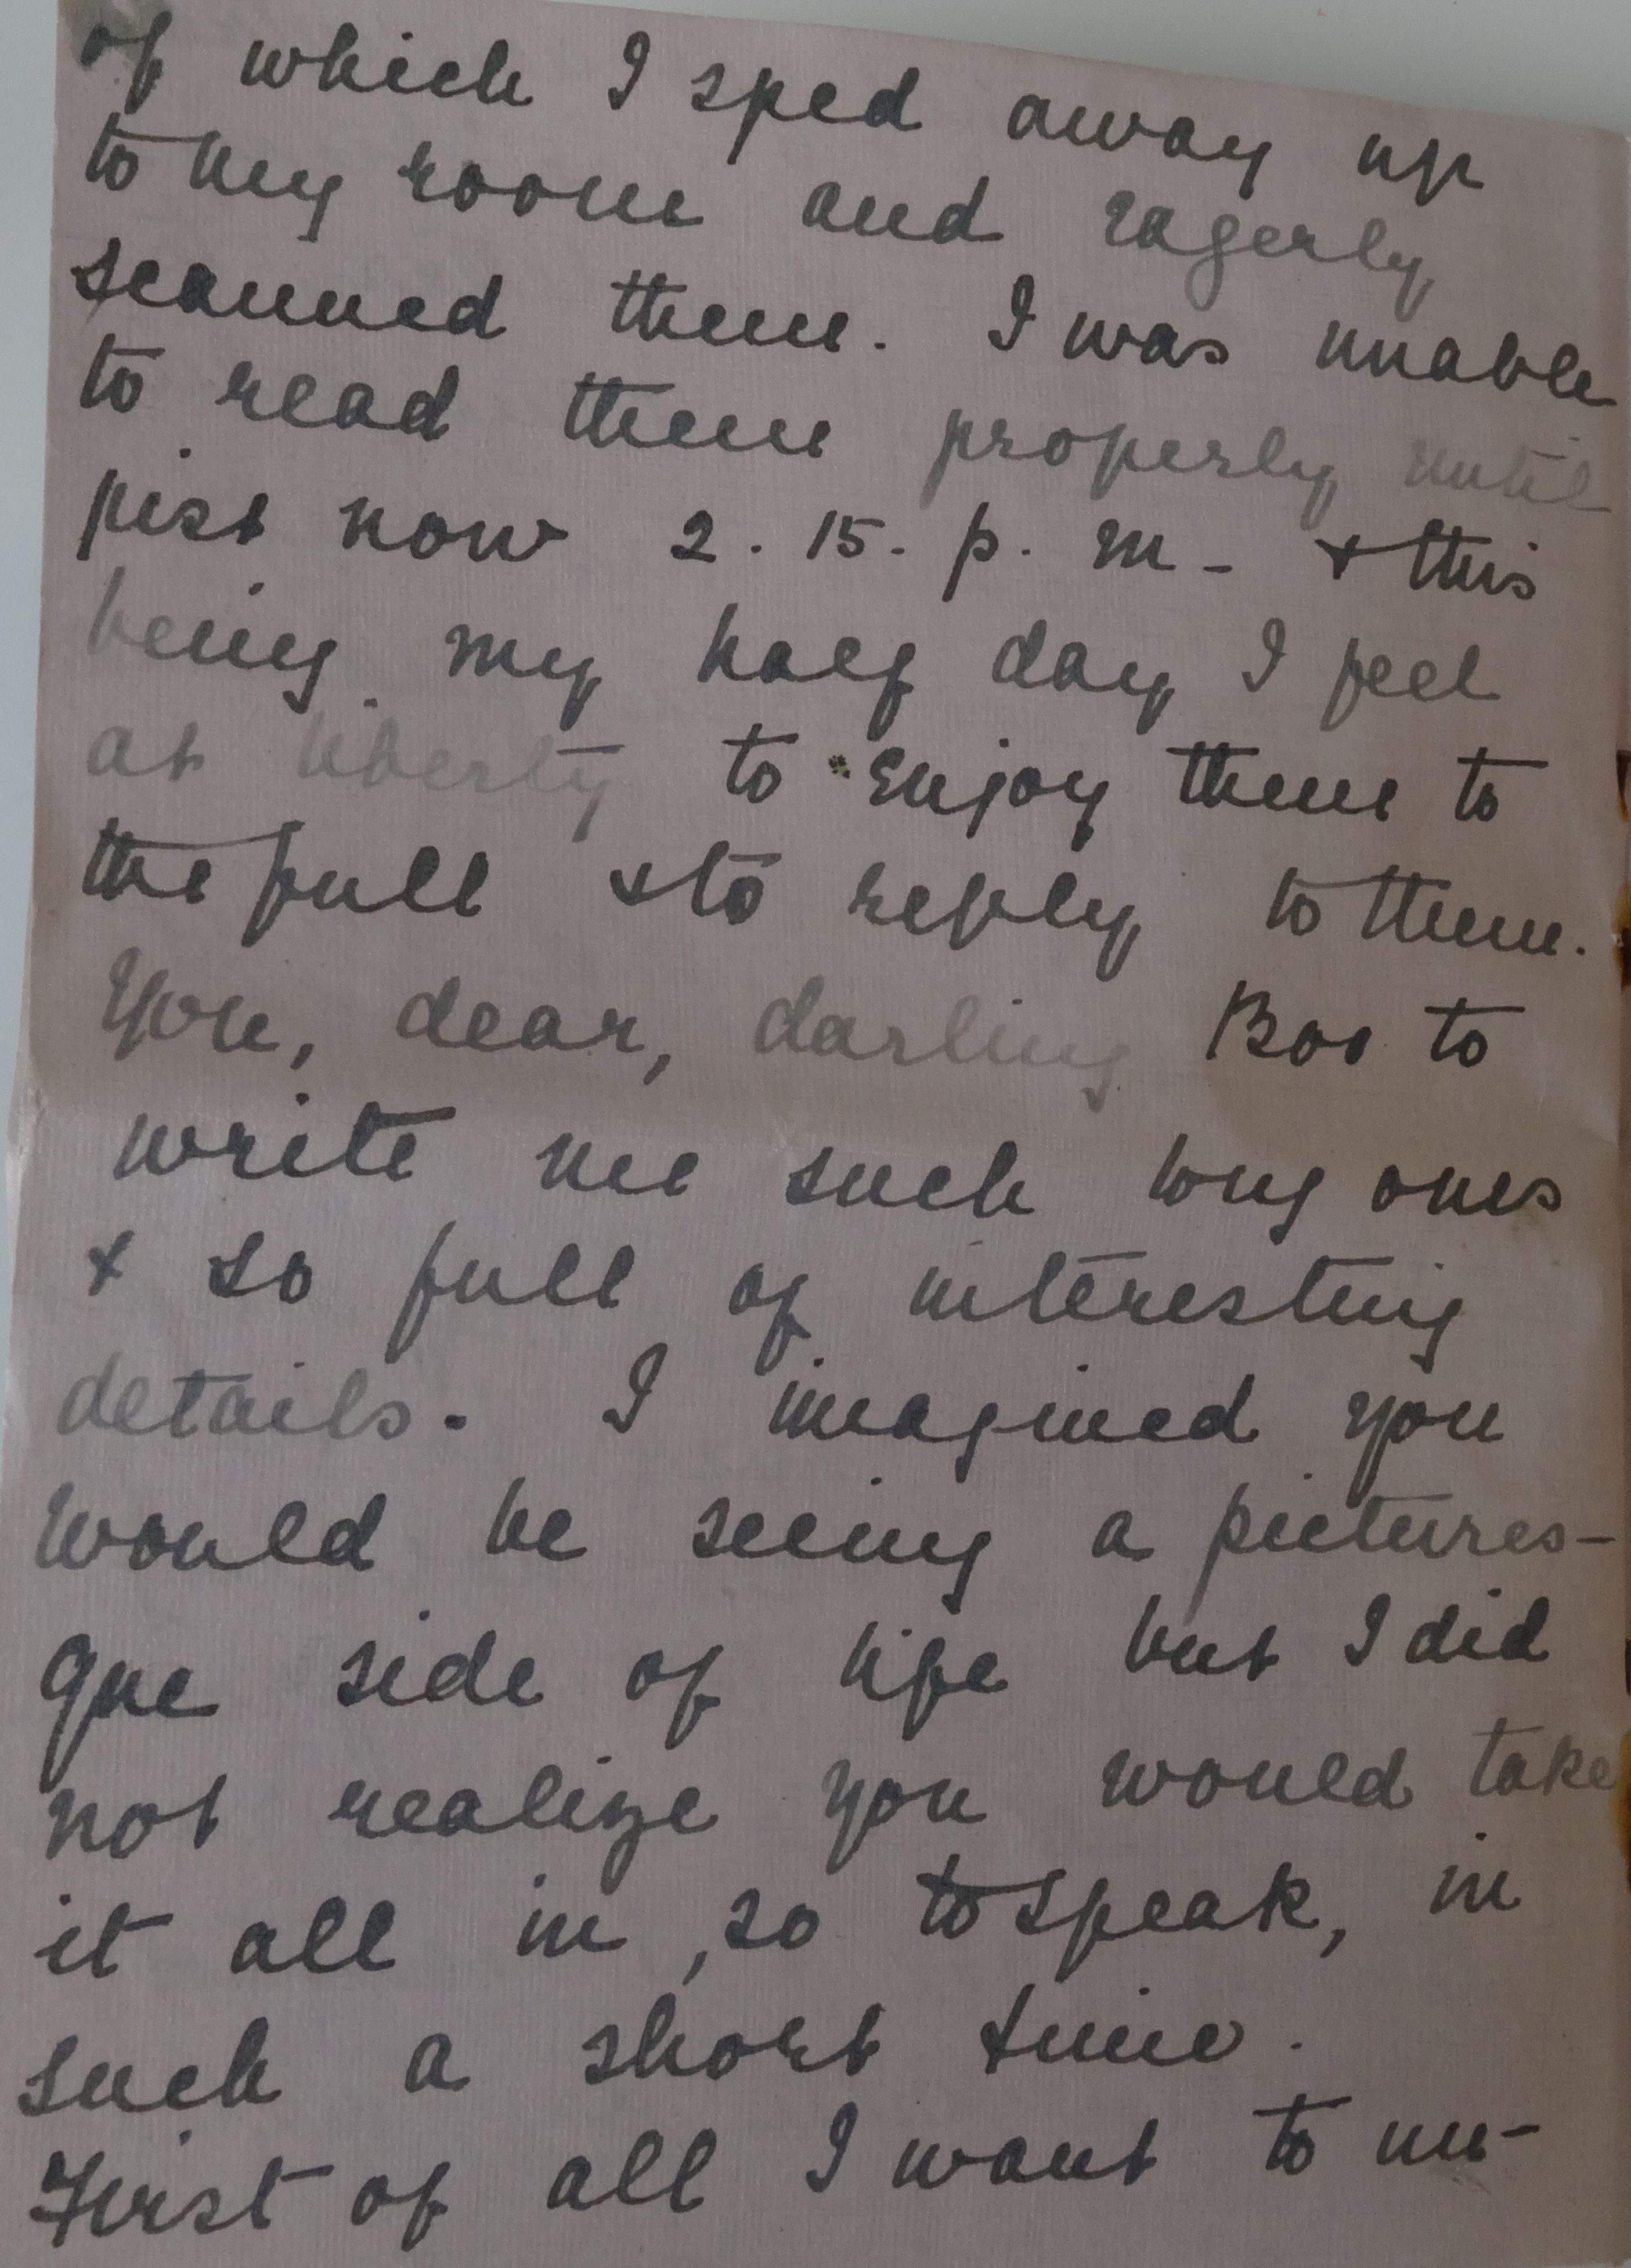 of which I sped away up
to my room and eagerly
scanned them. I was unable
to read them properly until
just now 2.15. p. m - & this
being my half day I feel
at liberty to enjoy them to
the full & to reply to them.
You, dear, darling Boo to
write me such long ones
& so full of interesting
details. I imagined you
would be seeing a pictures-
que side of life but I did
not realize you would take
it all in, so to speak, in
such a short time.
First of all I want to un-